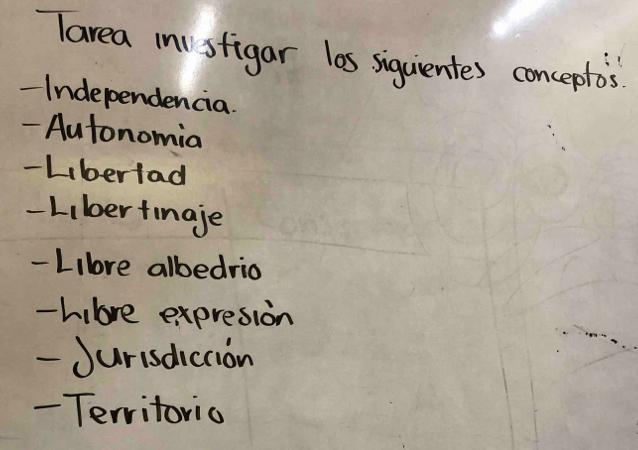 Tarea investigar los siguientes conceptos:
-Independencia.
-Autonomia
-Libertad
-Libertinaje
-Libre albedrio
-Libre expresión
-Jurisdicción
-Territorio